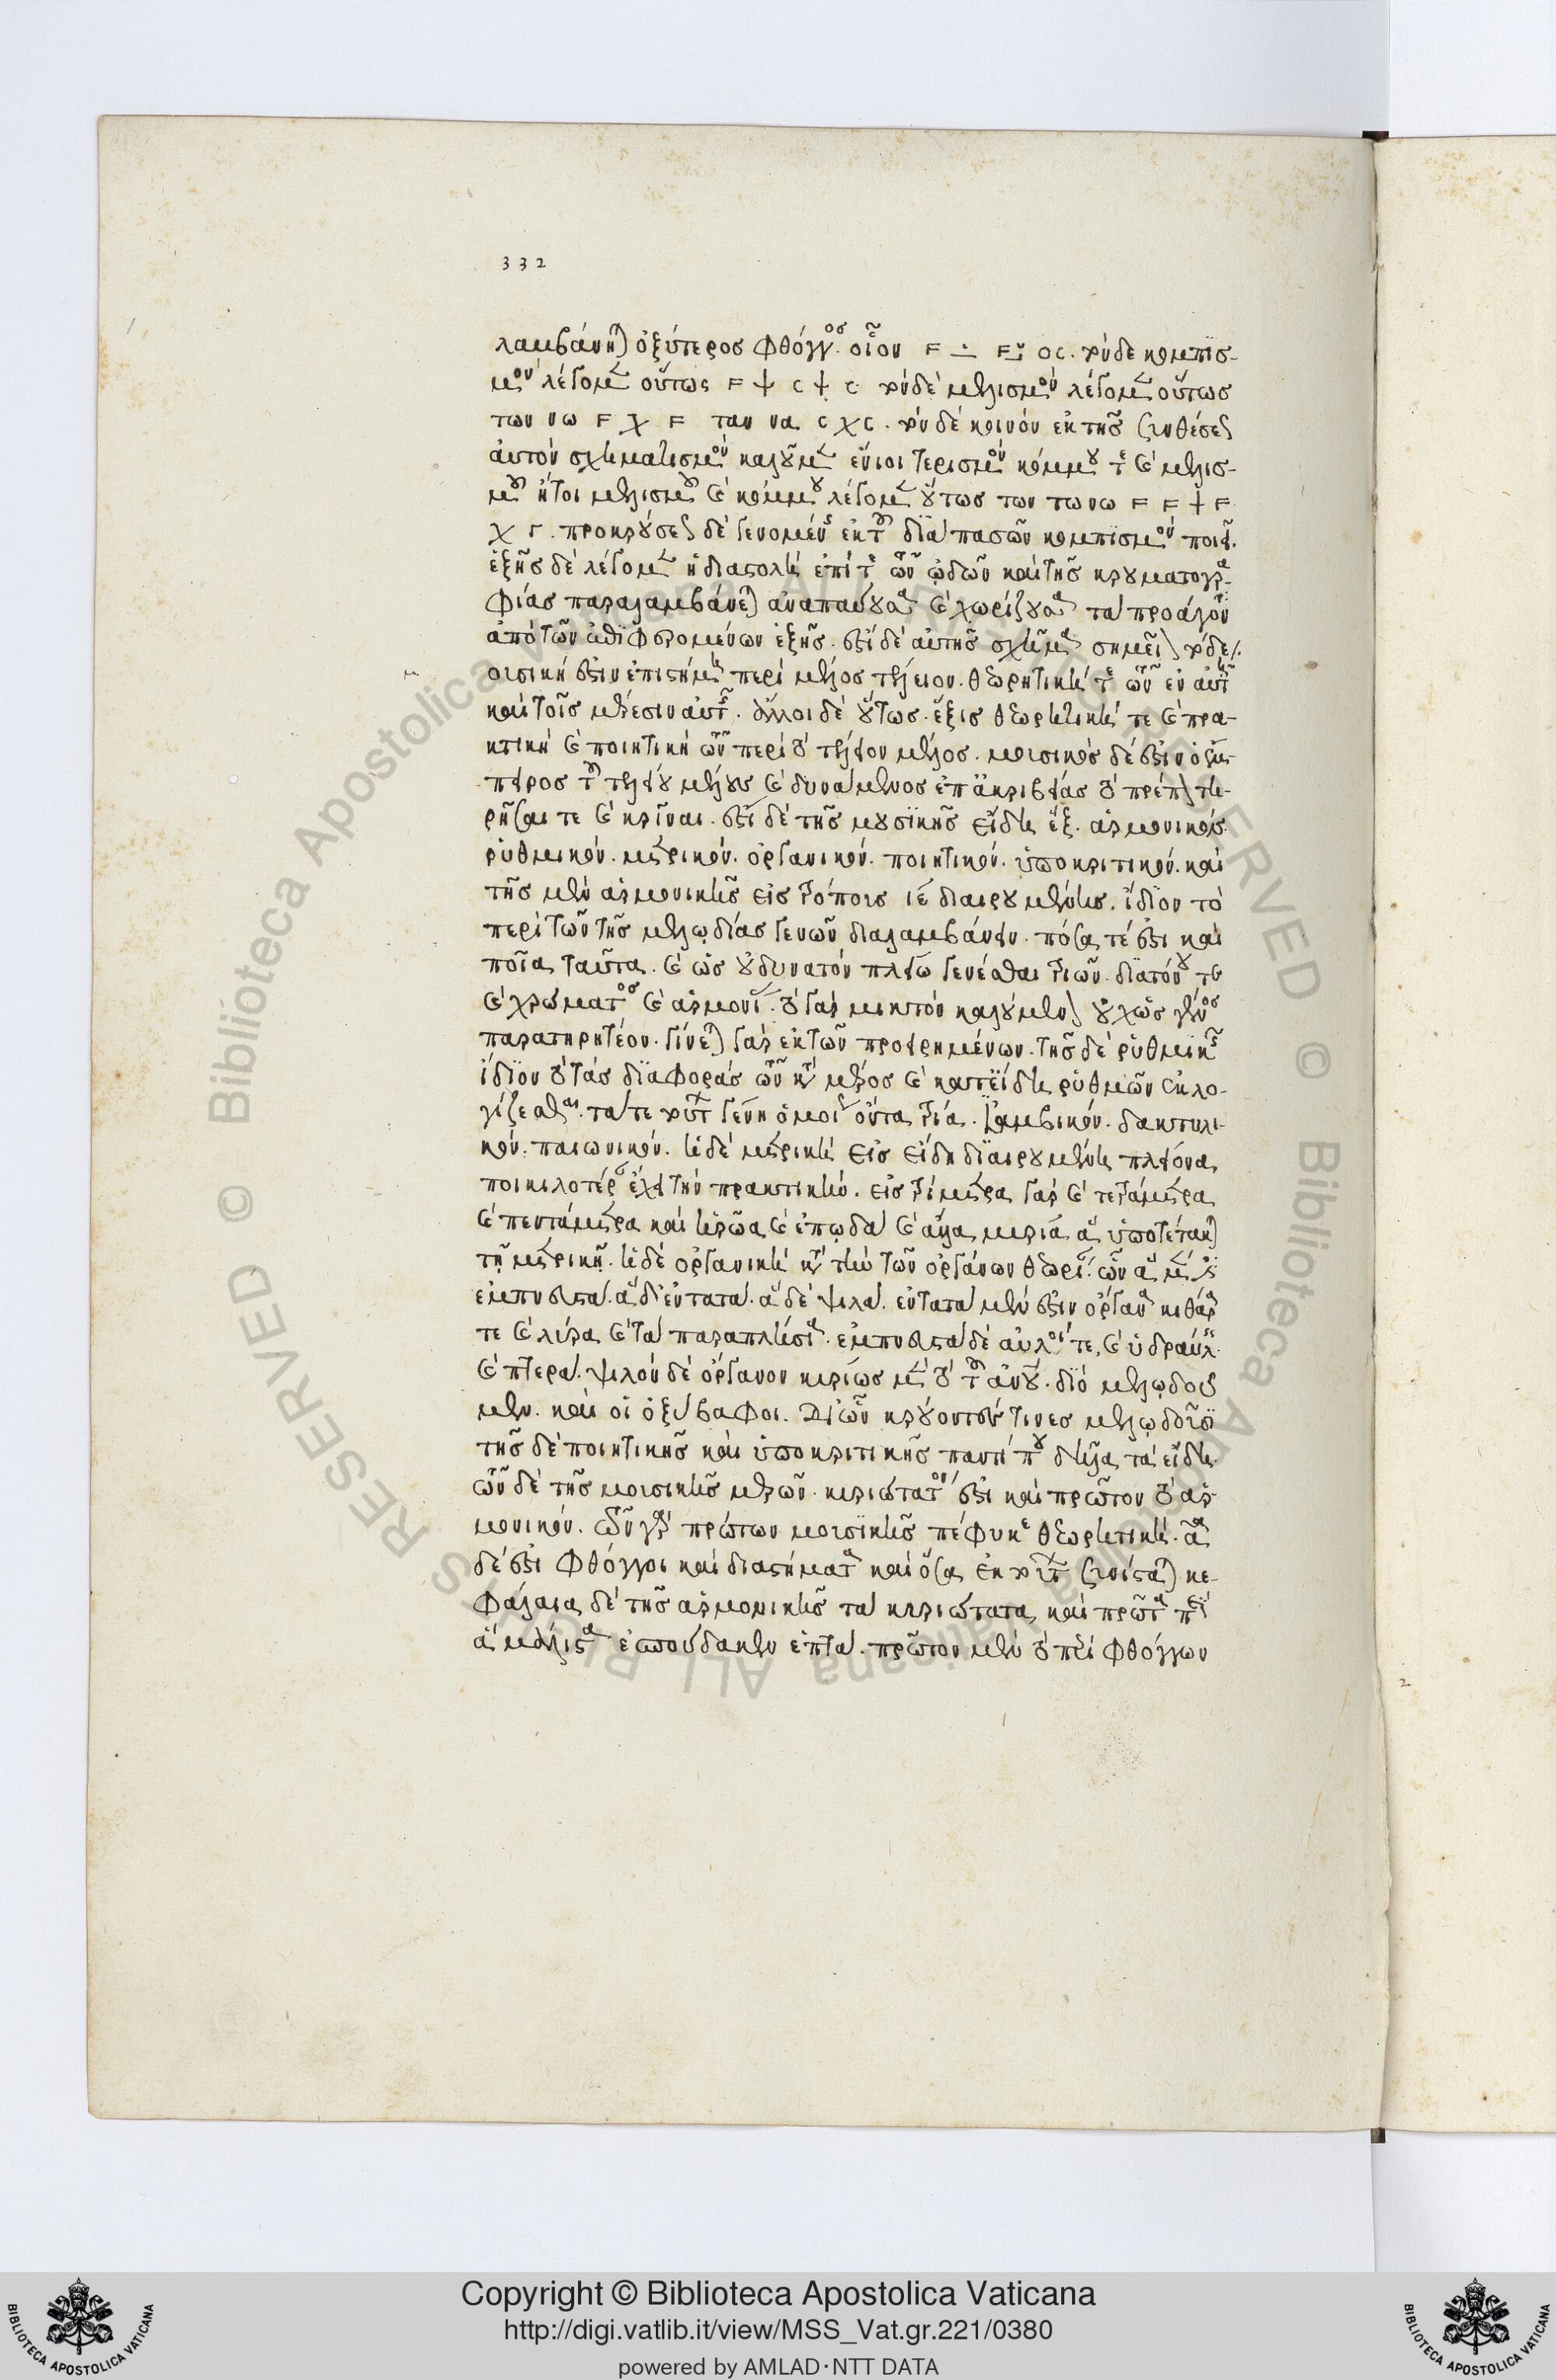 332
λαμβάνηται ὀξύτερος φθόγγος. οἷον F ∸ F ⏑ ο c. τὸν δὲ κομπισ-
μὸν λέγομεν οὕτως F ⍦ c ⍦ c. τὸν δὲ μελισμὸν λέγομεν οὕτως
των νω F χ F ταν να c χ c. τὸν δὲ κοινὸν ἐκ τῆς συνθέσεως
αὐτὸν σχηματισμὸν καλοῦμεν ἔνιοι τερισμὸν κόμμου τε καὶ μελισ-
μοῦ ἤτοι μελισμοῦ καὶ κόμμου λέγομεν οὕτως των τωνω F F + F
χ Γ. προκρούσεως δὲ γενομένης ἐκ τοῦ διαπασῶν κομπισμὸν ποιεῖ.
ἑξῆς δὲ λέγομεν ἡ διαστολὴ ἐπί τε τῶν ᾠδῶν καὶ τῆς κρουματογρα-
φίας παραλαμβάνεται ἀναπαύουσα καὶ χωρίζουσα τὰ προάγοντα
ἀπὸ τῶν ἐπιφερομένων ἑξῆς. ἐστὶ δὲ αὐτῆς σχῆμα σημεῖον τόδε /.
μ
ουσική ἐστιν ἐπιστήμη περὶ μέλος τέλειον. θεωρητικὴ τε τῶν ἐν αὐτῇ
καὶ τοῖς μέρεσιν αὐτῆς. ἄλλοι δὲ οὕτως. ἕξις θεωρητική τε καὶ πρα-
κτική καὶ ποιητική τῶν περὶ τὸ τέλειον μέλος. μουσικὸς δέ ἐστιν ὁ ἔμ-
πειρος τοῦ τελείου μέλους καὶ δυνάμενος ἐπ' ἀκριβείας τὸ πρέπον τη-
ρῆσαι τε καὶ κρῖναι. ἐστὶ δὲ τῆς μουσικῆς εἴδη ἕξ. ἁρμονικόν.
ῥυθμικόν. μετρικόν. ὀργανικόν. ποιητικόν. ὑποκριτικόν. καὶ
τῆς μὲν ἁρμονικῆς εἰς τόπους ιε διαιρουμένης. ἴδιον τὸ
περὶ τῶν τῆς μελῳδίας γενῶν διαλαμβάνειν. πόσα τέ ἐστι καὶ
ποῖα ταῦτα. καὶ ὡς οὐ δυνατὸν πλείω γενέσθαι τριῶν. διατόνου τε
καὶ χρώματος καὶ ἁρμονίας. τὸ γὰρ μικτὸν καλούμενον οὐχ ὡς γένος
παρατηρητέον. γίνεται γὰρ ἐκ τῶν προειρημένων. τῆς δὲ ῥυθμικῆς
ἴδιον τὸ τὰς διαφορὰς τῶν κατὰ μέρος καὶ κατ' εἴδη ῥυθμῶν ἐκλο-
γίζεσθαι. τά τε τούτων γένη ὁμοίως ὄντα τρία. ἰαμβικόν. δακτυλι-
κόν. παιωνικόν. ἡ δὲ μετρικὴ εἰς εἴδη διαιρουμένη πλείονα
ποικιλοτέραν ἔχει τὴν πρακτικήν. εἰς τρίμετρα γὰρ καὶ τετράμετρα
καὶ πεντάμετρα καὶ ἡρῷα καὶ ἐπῳδὰ καὶ ἄλλα μυρία ἃ ὑποτέτακται
τῇ μετρικῇ. ἡ δὲ ὀργανικὴ κατὰ τὴν τῶν ὀργάνων θεωρίαν. ὧν ἃ μέν ἐστι
ἐμπνευστά. ἃ δ' ἐντατά. ἃ δὲ ψιλά. ἐντατὰ μέν ἐστιν ὄργανα κιθάρα
τε καὶ λύρα καὶ τὰ παραπλήσια. ἐμπνευστὰ δὲ αὐλοί τε, καὶ ὑδραύλεις
καὶ πτερά. ψιλὸν δὲ ὄργανον κυρίως μὲν τὸ τοῦ ἀνοῦ. διὸ μελῳδοῦσι
μεν. καὶ οἱ ὀξύβαφοι. δι' ὧν κρούοντές τινες μελῳδοῦσι
τῆς δὲ ποιητικῆς καὶ ὑποκριτικῆς παντί που δῆλα τὰ εἴδη.
τῶν δὲ τῆς μουσικῆς μερῶν. κυριώτατόν ἐστι καὶ πρῶτον τὸ ἁρ-
μονικόν. τῶν γὰρ πρώτων μουσικῆς πέφυκε θεωρητική. ταῦτα
δέ ἐστι φθόγγοι καὶ διαστήματα καὶ ὅσα ἐκ τούτων συνίσταται. κε-
φάλαια δὲ τῆς ἁρμονικῆς τὰ κυριώτατα καὶ πρῶτα περὶ
ἃ μάλιστα ἐσπούδακεν ἑπτά. πρῶτον μὲν τὸ περὶ φθόγγων
Copyright © Biblioteca Apostolica Vaticana
http://digi.vatlib.it/view/MSS_Vat.gr.221/0380
powered by AMLAD·NTT DATA